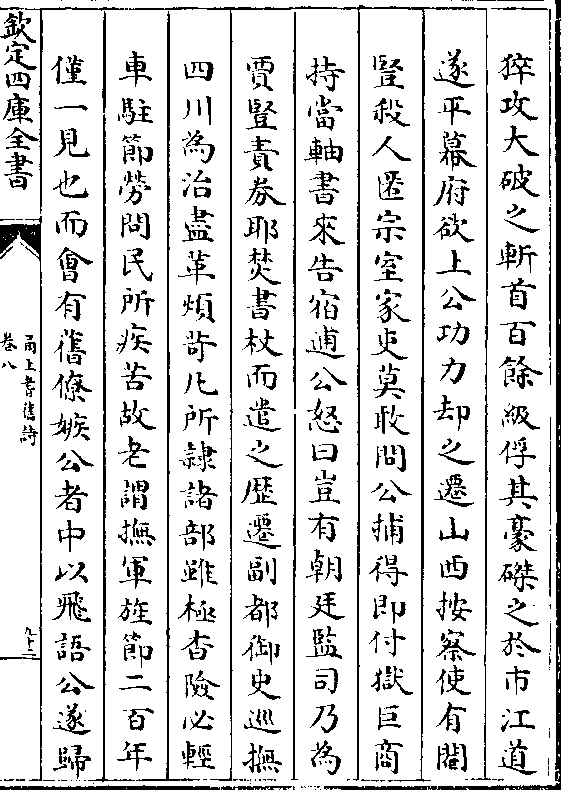 猝攻大破之斬首百餘級俘其豪磔之於市江道
遂平幕府欲上公功力却之遷山西按察使有閹
豎殺人匿宗室家吏莫敢問公捕得即付獄巨商
持當軸書來告宿逋公怒曰豈有朝廷監司乃為
賈豎責券耶焚書杖而遣之歴遷副都御史巡撫
四川為治盡革煩苛凡所隷諸部雖極杳險必輕
車駐節勞問民所疾苦故老謂撫軍旌節二百年
僅一見也而會有舊僚嫉公者中以飛語公遂歸
欽定四庫全書
甬上耆舊詩
卷八
九十三